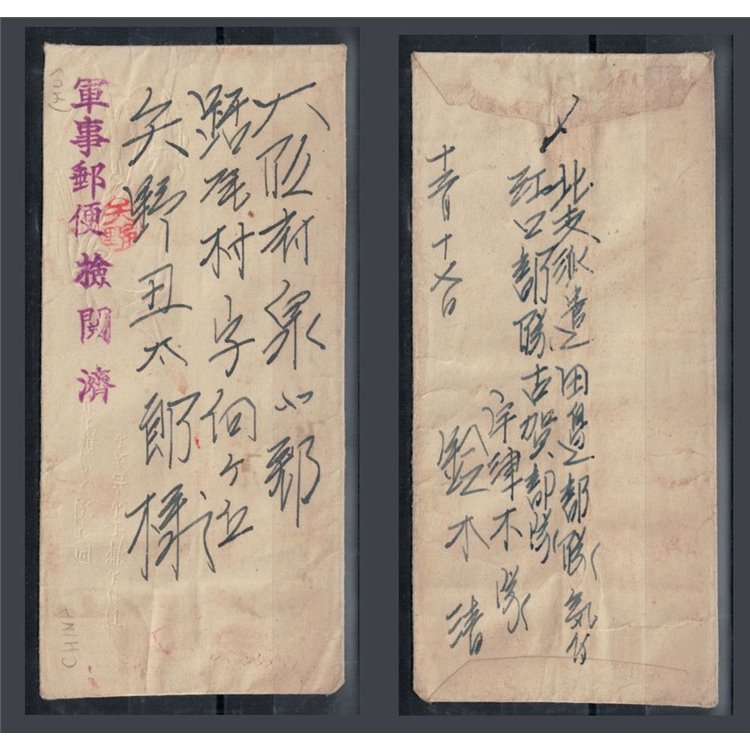 大阪府泉北郡
踞尾村字向ヶ丘
矢野丑太郎様
軍事郵便檢閲濟
矢野
CHINA
北支派遣田邊部隊気付
江口部隊古賀部隊
宇津木隊
鈴木清